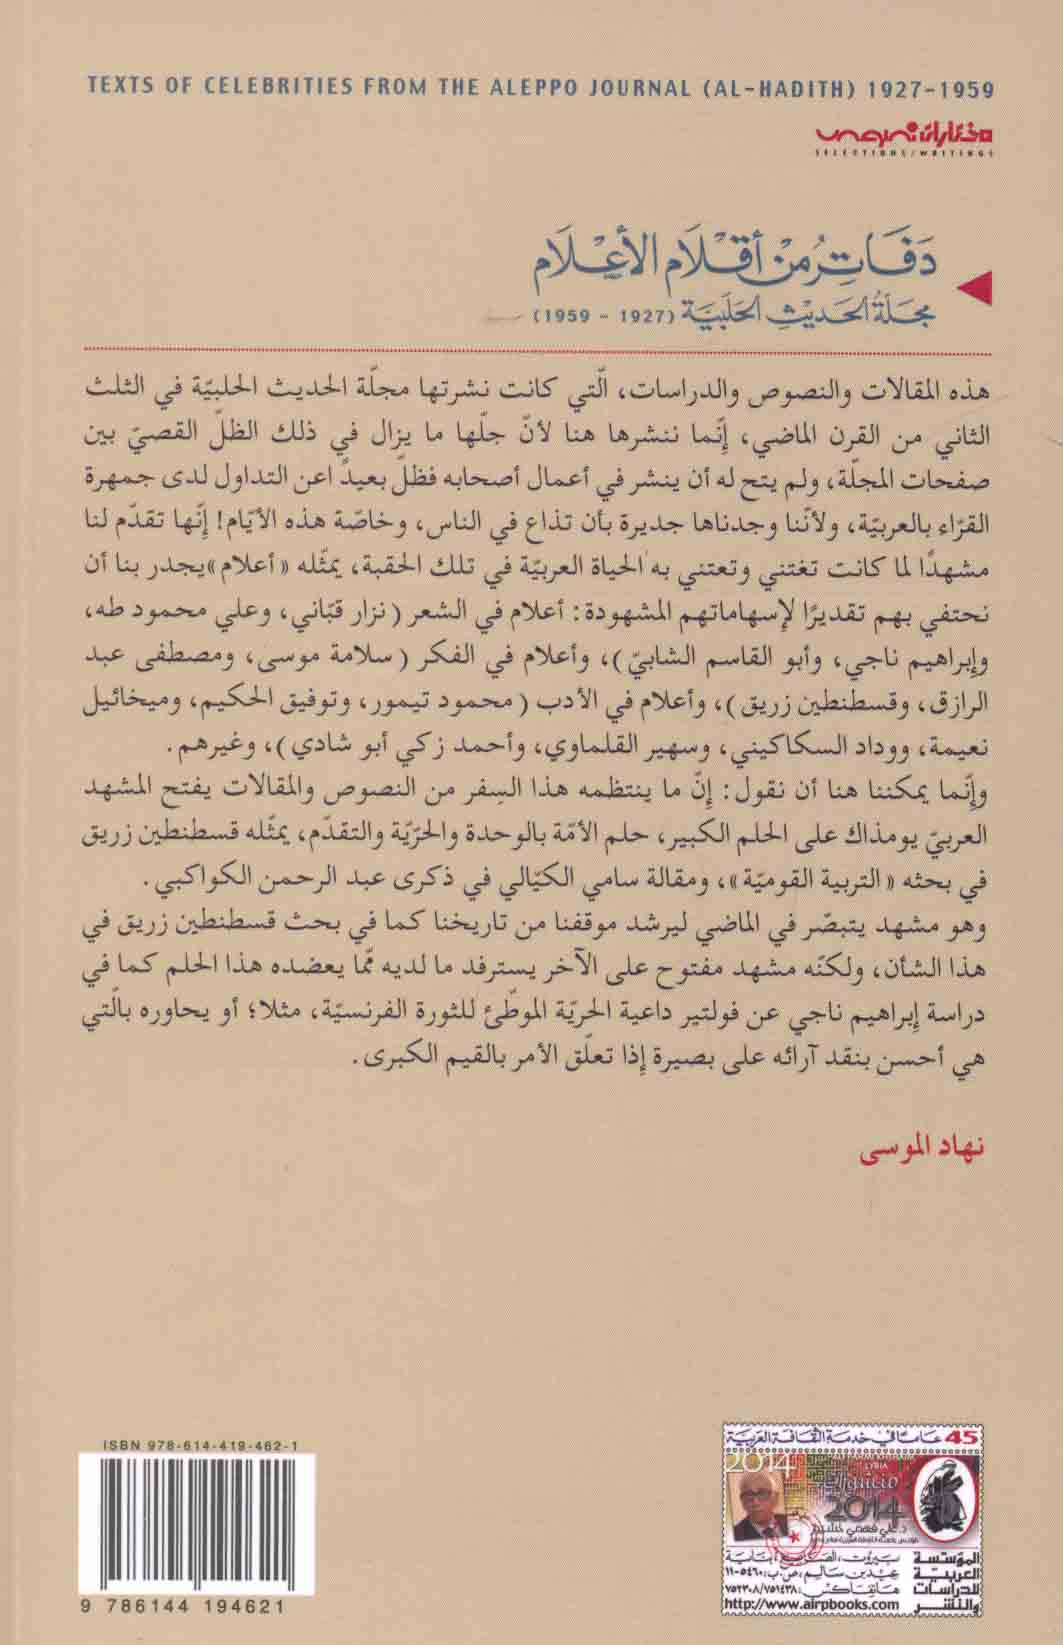 TEXTS OF CELEBRITIES FROM THE ALEPPO JOURNAL (AL-HADITH) 1927-1959
مختارات نصوص
SELECTIONS/WRITINGS
دَفَاتِرُ مِنْ أَقْلَامِ الأَعْلَام
مَجَلَّةُ الحَديثِ الحَلَبيَّة (1927 - 1959)
هذه المقالات والنصوص والدراسات، الّتي كانت نشرتها مجلّة الحديث الحلبيّة في الثلث
الثاني من القرن الماضي، إنّما ننشرها هنا لأنّ جلّها ما يزال في ذلك الظلّ القصيّ بين
صفحات المجلّة، ولم يتح له أن ينشر في أعمال أصحابه فظلّ بعيدًا عن التداول لدى جمهرة
القرّاء بالعربيّة، ولأنّنا وجدناها جديرة بأن تذاع في الناس، وخاصّة هذه الأيّام! إنّها تقدّم لنا
مشهدًا لما كانت تغتني وتعتني به الحياة العربيّة في تلك الحقبة، يمثّله «أعلام» يجدر بنا أن
نحتفي بهم تقديرًا لإسهاماتهم المشهودة: أعلام في الشعر (نزار قبّاني، وعلي محمود طه،
وإبراهيم ناجي، وأبو القاسم الشابيّ)، وأعلام في الفكر (سلامة موسى، ومصطفى عبد
الرازق، وقسطنطين زريق)، وأعلام في الأدب (محمود تيمور، وتوفيق الحكيم، وميخائيل
نعيمة، ووداد السكاكيني، وسهير القلماوي، وأحمد زكي أبو شادي)، وغيرهم.
وإنّما يمكننا هنا أن نقول: إنّ ما ينتظمه هذا السِفر من النصوص والمقالات يفتح المشهد
العربيّ يومذاك على الحلم الكبير، حلم الأمّة بالوحدة والحرّيّة والتقدّم، يمثّله قسطنطين زريق
في بحثه «التربية القوميّة»، ومقالة سامي الكيّالي في ذكرى عبد الرحمن الكواكبي.
وهو مشهد يتبصّر في الماضي ليرشد موقفنا من تاريخنا كما في بحث قسطنطين زريق في
هذا الشأن، ولكنّه مشهد مفتوح على الآخر يسترفد ما لديه ممّا يعضده هذا الحلم كما في
دراسة إبراهيم ناجي عن فولتير داعية الحريّة الموطّئ للثورة الفرنسيّة، مثلا؛ أو يحاوره بالّتي
هي أحسن بنقد آرائه على بصيرة إذا تعلّق الأمر بالقيم الكبرى.
نهاد الموسى
ISBN 978-614-419-462-1
9 786144 194621
45 عاماً في خدمة الثقافة العربية
2014
LYRIA
2014
د. علي فهمي خشيم
المؤسسة
العربية
للدراسات
والنشر
بيروت، الصنايع، بناية
عيد بن سالم، ص.ب: ٥٤٦٠-١١
هاتفاكس: ٧٥٢٣٠٨/٧٥١٤٣٨
http://www.airpbooks.com